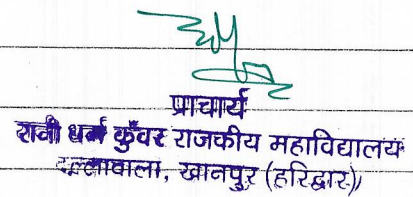 प्राचार्य
रानी धर्म कुँवर राजकीय महाविद्यालय
दल्लावाला, खानपुर (हरिद्वार)